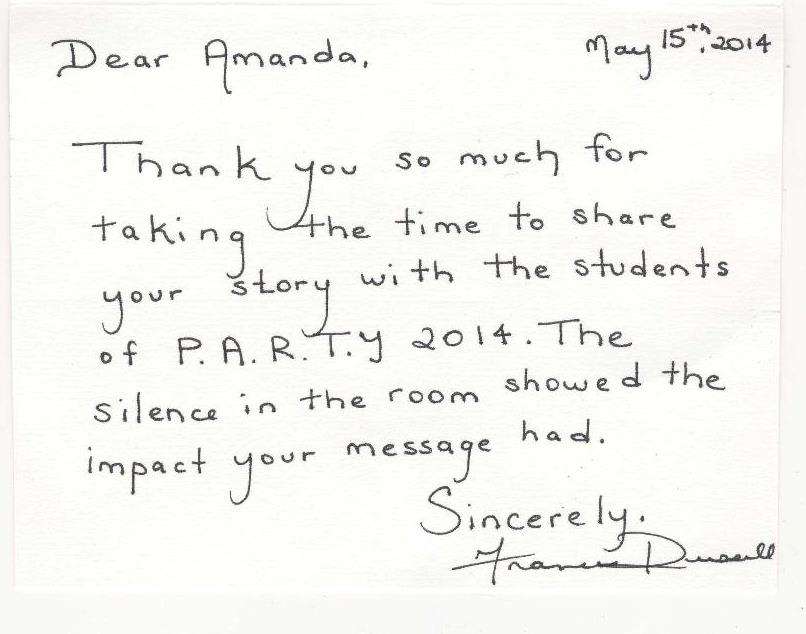 Dear Amanda,
May 15th, 2014
Thank you so much for
taking the time to share
your story with the students
of P.A.R.T.y 2014. The
silence in the room showed the
impact your message had.
Sincerely.